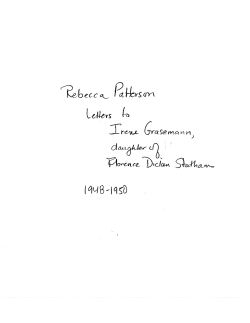 Rebecca Patterson
Letters to
Irene Grasemann,
daughter of
Florence Dicken Statham
1948-1950